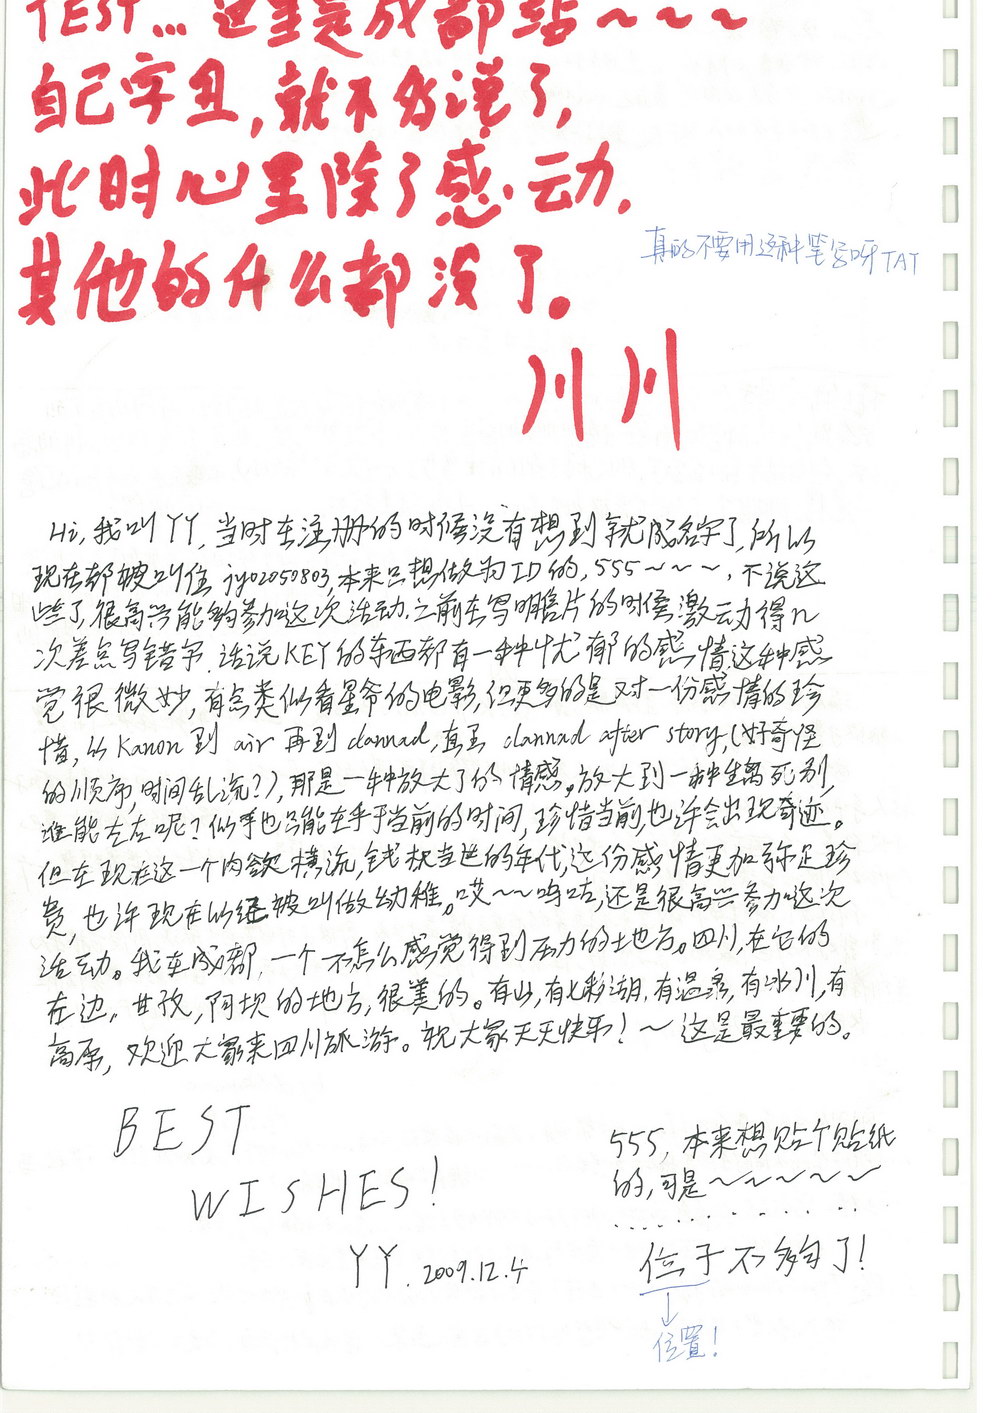 TEST... 这里是成都站～～～
自己字丑,就不多说了,
此时心里除了感动.
其他的什么都没了。
真的不要用这种笔写呀TAT
川川
Hi,我叫YY.当时在注册的时候没有想到就成名字了,所以
现在都被叫住jy02050803,本来只想做为ID的,555～～～,不说这
些了,很高兴能够参加这次活动.之前在写明信片的时候激动得n
次差点写错字.话说KEY的东西都有一种忧郁的感情,这种感
觉很微妙,有点类似看星爷的电影,但更多的是对一份感情的珍
惜,从Kanon到air再到clannad,直至clannad after story,(好奇怪
的顺序,时间乱流?),那是一种放大了的情感。放大到一种生离死别,
谁能左右呢?似乎也只能在乎于当前的时间,珍惜当前,也许会出现奇迹。
但在现在这一个肉欲横流,钱权当道的年代,这份感情更加弥足珍
贵,也许现在以经被叫做幼稚。哎～～呜咕,还是很高兴参加这次
活动。我在成都,一个不怎么感觉得到压力的地方。四川,在它的
左边,甘孜,阿坝的地方,很美的。有山,有七彩湖,有温泉,有冰川,有
高原,欢迎大家来四川旅游。祝大家天天快乐!～这是最重要的。
BEST
WISHES!
YY.2009.12.4
555,本来想贴个贴纸
的,可是～～～～～
..............
位子不够了!
↓
位置!